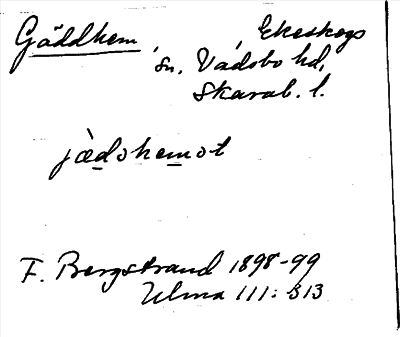 Gäddhem, Ekeskogs
sn, Vadsbo hd,
Skarab. l.
jæ̀dohemot
F. Bergstrand 1898-99
Ulma 111: 313